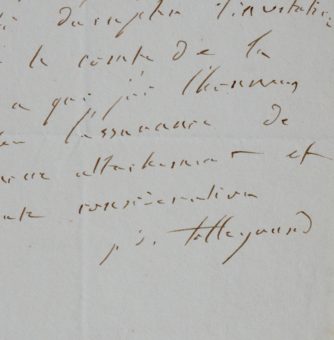 d'accepter l'invitation
le comte de la
a qui j'ai l'honneur
l'assurance de
attachement et
consideration
Talleyrand